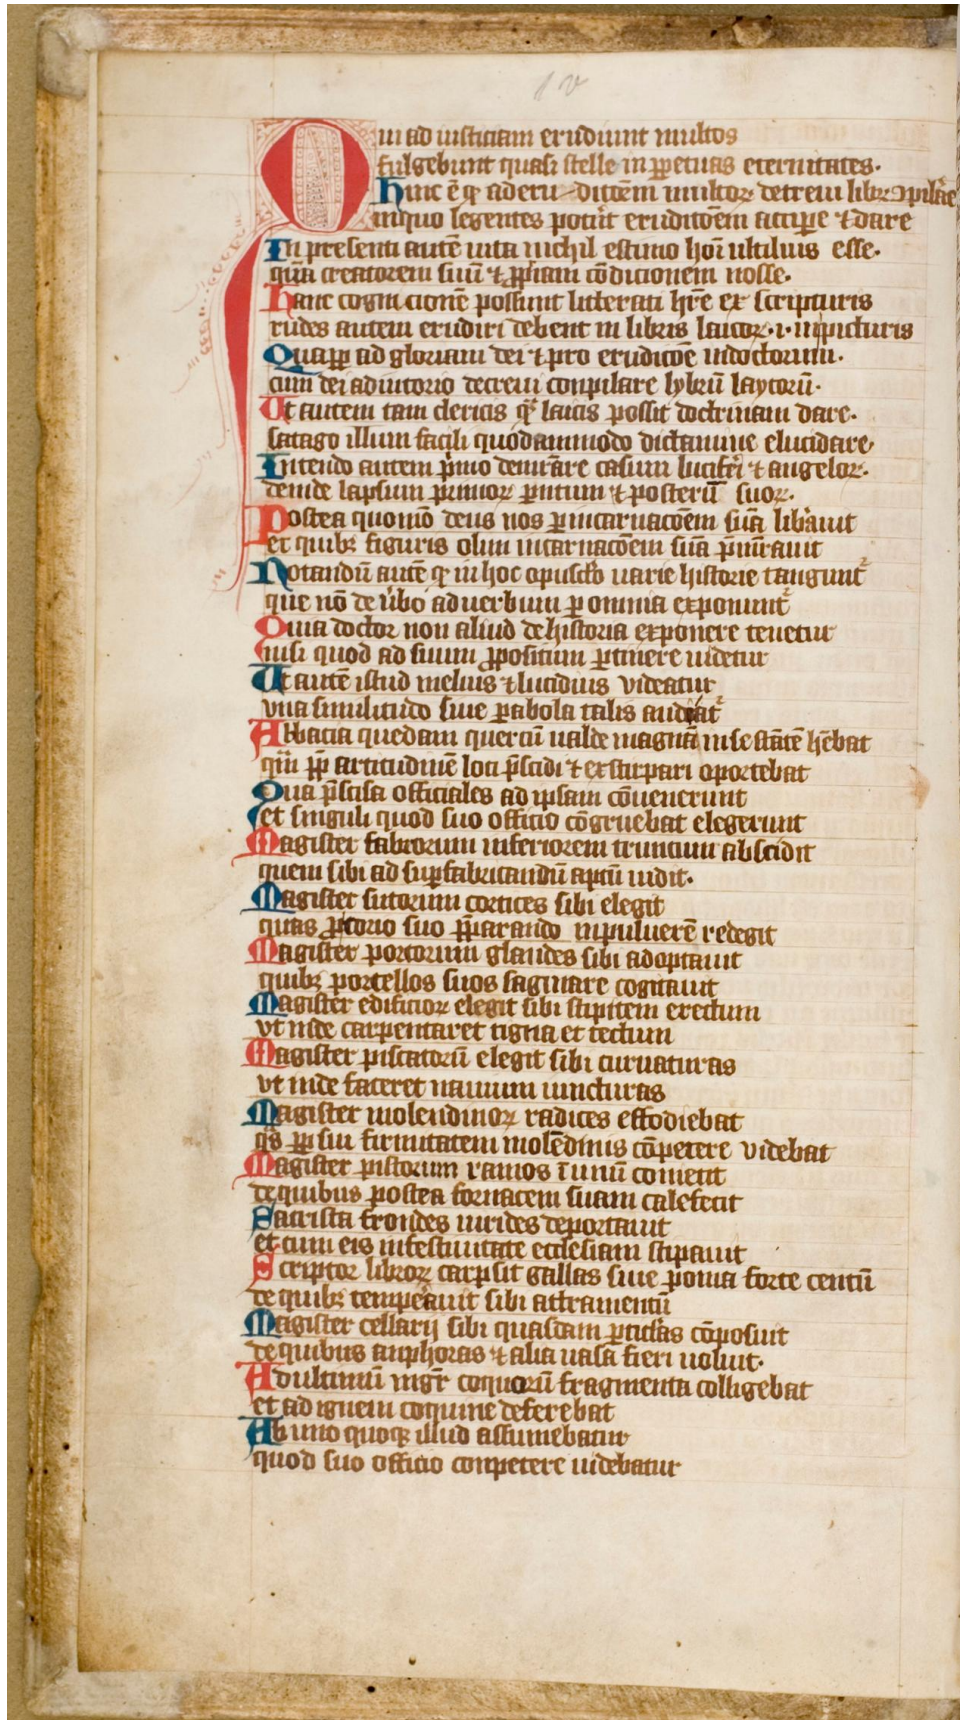 Qui ad iusticiam erudiunt multos
fulgebunt quasi stelle in ꝑpetuas eternitates.
Hinc ē qꝫ ad eru ditōem multoꝝ decreui libꝝ ↄpilare
in quo legentes poterūt erudicōem accipere ⁊ dare
In presenti autē uita nichil estimo hoī utilius esse.
quā creatorem suū ⁊ ꝓpriam cōdicionem nosse.
Hanc cognicionē possunt litterati hr̄e ex scripturis
rudes autem erudiri debent in libris laicoꝝ .i. in picturis
Quaꝓp̄ ad gloriam dei ⁊ pro erudicōe indoctorum.
cum dei adiutorio decreui conpilare lybrū laycorū.
Ut autem tam clericis qᷓ laicis possit doctrinam dare.
satago illum facili quodammodo dictamine elucidare
Intendo autem p̄mo demr̄are casum luciferi ⁊ angeloꝝ.
deinde lapsum primoꝝ parentum ⁊ posterū suoꝝ.
Postea quomō deus nos ꝑ incarnacōem suā liberauit
et quibꝫ figuris olim incarnacōem suā p̄mr̄auit
Notandū autē qꝫ in hoc opusculo uarie historie tangunt᷑
que nō de u̾bo ad uerbum ꝑ omnia exponunt᷑
Quia doctor non aliud de historia exponere tenetur
nisi quod ad suum ꝓpositum ꝑtinere uidetur
Ut autē istud melius ⁊ lucidius videatur
vna similitudo siue ꝑabola talis audiat᷑
Abbacia quedam quercū ualde magnā in se stātē hēbat
quā ꝓp̄ artitudinē loci p̄scidi ⁊ exstirpari oportebat
Qua p̄scisa officiales ad ipsam cōuenerunt
et singuli quod suo officio cōgruebat elegerunt
Magister fabrorum inferiorem truncum abscidit
quem sibi ad suꝑfabricandū aptū uidit.
Magister sutorum cortices sibi elegit
quas coreo suo p̄parando in puluerē redegit
Magister porcorum glandes sibi adoptauit
quibꝫ porcellos suos saginare cogitauit
Magister edificioꝝ elegit sibi stipitem erectum
vt inde carpentaret tigna et tectum
Magister piscatorū elegit sibi curuaturas
vt inde faceret nauium iuncturas
Magister molendinoꝝ radices effodiebat
qᷓs ꝓp̄ sui firmitatem molēdinis cōpetere videbat
Magister pistorum ramos ī unū coniecit
de quibus postea fornacem suam calefecit
Sacrista frondes uirides deportauit
et cum eis in festiuitate ecclesiam stipauit
Scriptor libroꝝ carpsit gallas siue poma forte centū
de quibꝫ temperauit sibi attramentū
Magister cellarij sibi quasdam ꝑticulas cōposuit
de quibus amphoras ⁊ alia uasa fieri uoluit.
Ad ultimū mgr̄ coquorū fragmenta colligebat
et ad ignem coquine deferebat
Ab uno quoqꝫ illud assumebatur
quod suo officio conpetere uidebatur